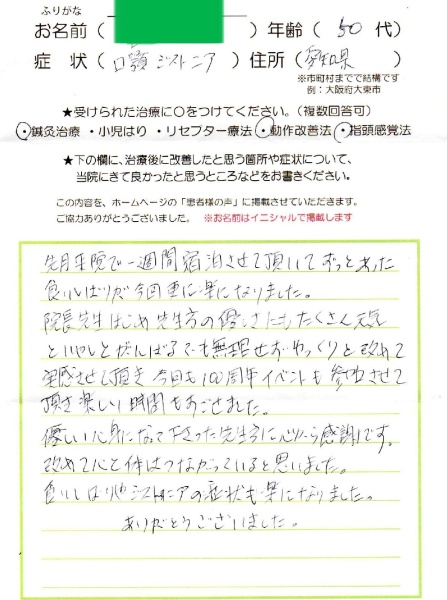 ふりがな
お名前（　　　）年齢（ 50 代）
症 状（口顎ジストニア）住所（愛知県）
※市町村までで結構です
例：大阪府大東市
★受けられた治療に〇をつけてください。（複数回答可）
・鍼灸治療 ・小児はり ・リセプター療法 ・動作改善法 ・指頭感覚法
★下の欄に、治療後に改善したと思う箇所や症状について、
当院にきて良かったと思うところなどをお書きください。
この内容を、ホームページの「患者様の声」に掲載させていただきます。
ご協力ありがとうございました。 ※お名前はイニシャルで掲載します
先月来院で一週間宿泊させて頂いてずっとあった
食いしばりが今回更に楽になりました。
院長先生はじめ先生方の優しさにもたくさん元気と
いやしとがんばるでも無理せずゆっくりと改めて
実感させて頂き今回も100周年イベントも参加させて
頂き楽しい時間もすごせました。
優しい心身になって下さった先生方に心から感謝です。
改めて心と体はつながっていると思いました。
食いしばりやジストニアの症状も楽になりました。
ありがとうございました。